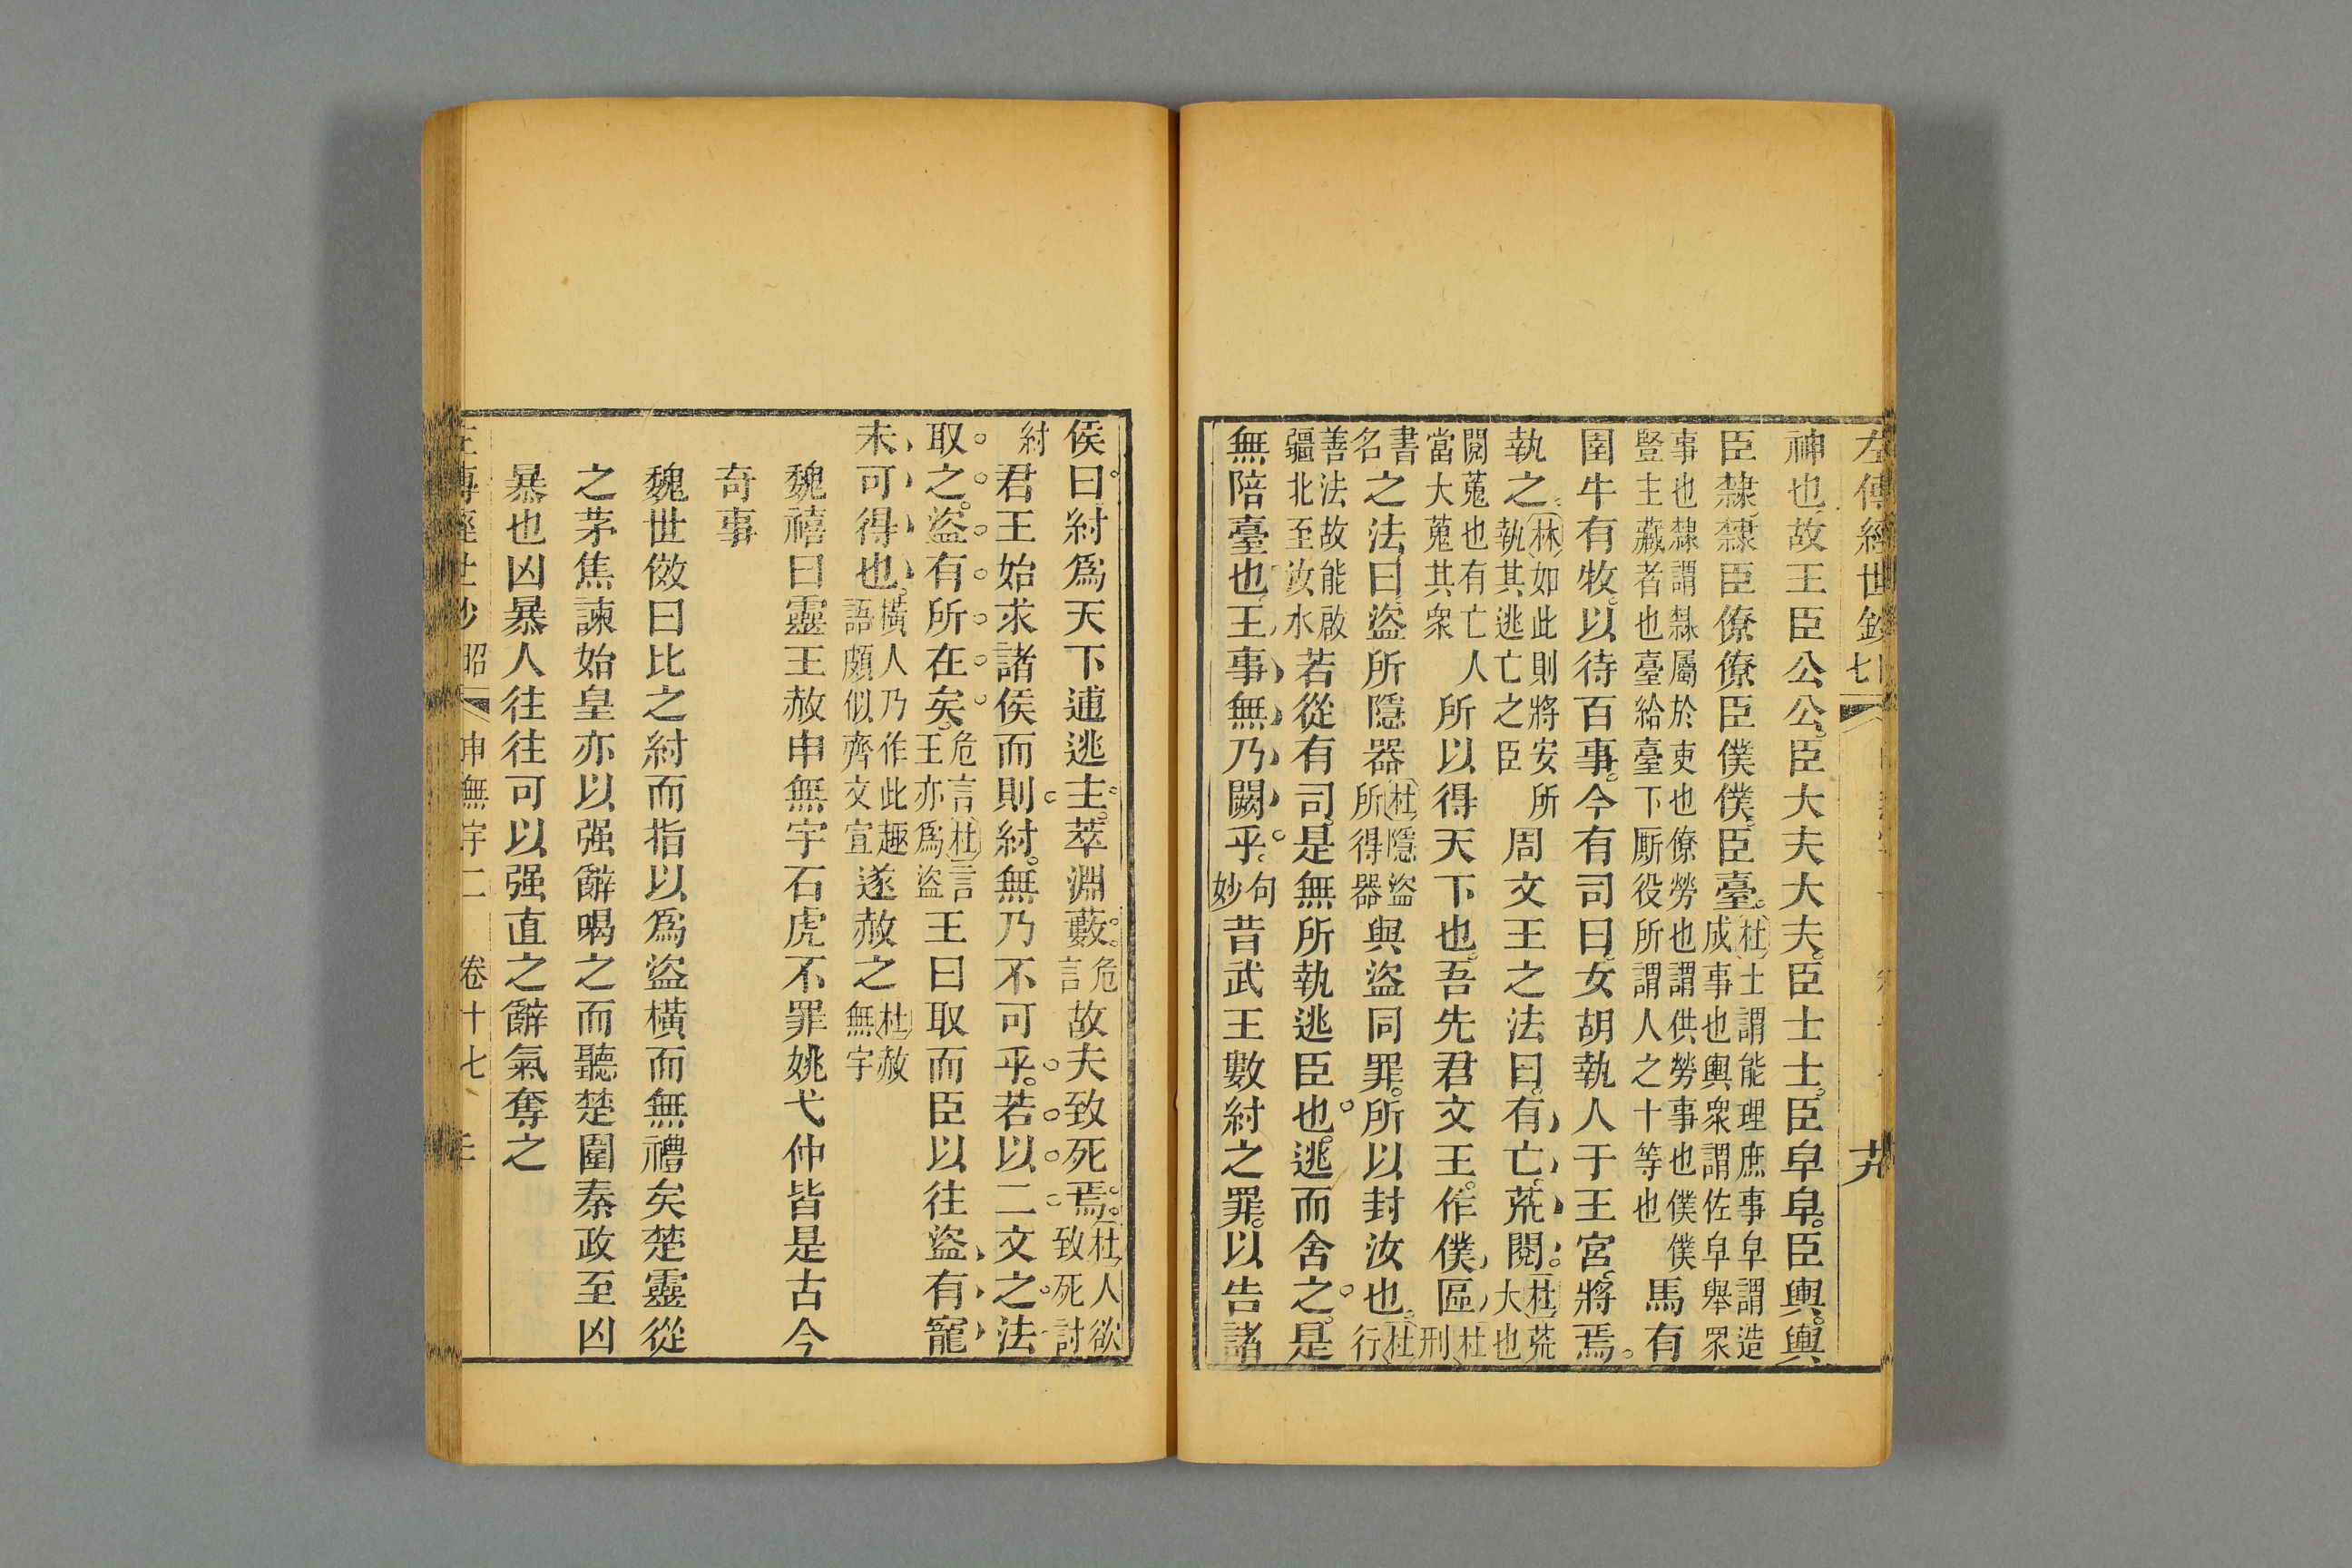 左傳經世鈔
神也故王臣公公臣大夫大夫臣士士臣皁皁臣輿輿
臣隸隸臣僚僚臣僕僕臣臺杜士謂能理庶事皁謂造成事也輿衆謂佐皁舉眾
事也隸謂隸屬於吏也僚勞也謂供勞事也僕僕豎主藏者也臺給臺下厮役所謂人之十等也馬有
圉牛有牧以待百事今有司曰女胡執人于王宮將焉
執之林如此則將安所執其逃亡之臣周文王之法曰有亡荒閱杜荒大也
閱蒐也有亡人當大蒐其衆所以得天下也吾先君文王作僕區杜刑
書名之法曰盜所隱器杜隱盜所得器與盜同罪所以封汝也杜行
善法故能啟疆北至汝水若從有司是無所執逃臣也逃而舍之是
無陪臺也王事無乃闕乎句妙昔武王數紂之罪以告諸
侯曰紂爲天下逋逃主萃淵藪危言故夫致死焉杜人欲致死討
紂君王始求諸侯而則紂無乃不可乎若以二文之法
取之盜有所在矣危言杜言王亦爲盜王曰取而臣以往盜有寵
未可得也橫人乃作此趣語頗似齊文宣遂赦之杜赦無宇
魏禧曰靈王赦申無宇石虎不罪姚弋仲皆是古今
奇事
魏世傚曰比之紂而指以爲盜橫而無禮矣楚靈從
之茅焦諫始皇亦以强辭喝之而聽楚圍秦政至凶
暴也凶暴人往往可以强直之辭氣奪之
左傳經世鈔 昭 申無宇二 卷十七